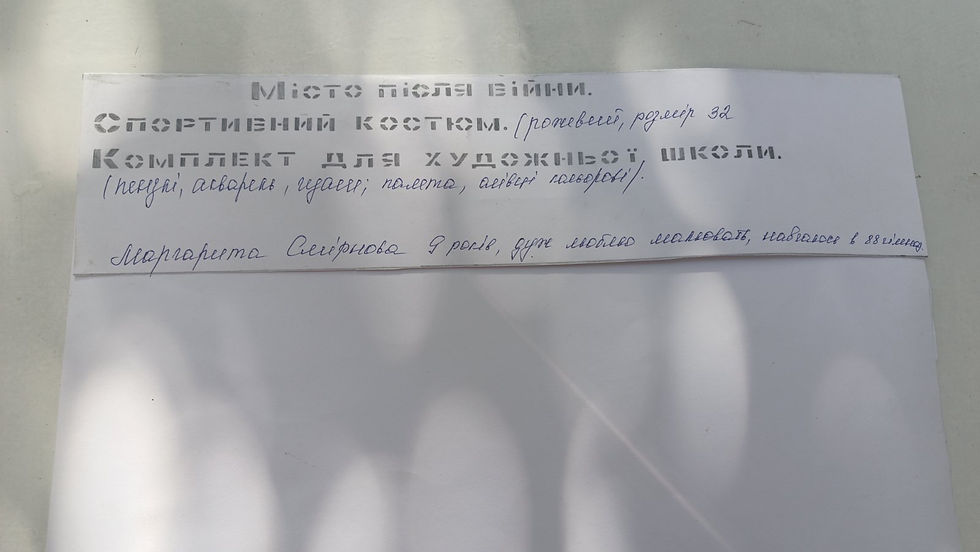 Місто після війни.
Спортивний костюм. (рожевий, розмір 32
Комплект для художньої школи.
(пензлі, акварель, гуаш; палета, олівці кольорові).
Маргарита Смірнова 9 років, дуж люблю малювать, навчаюся в 88 гімназ